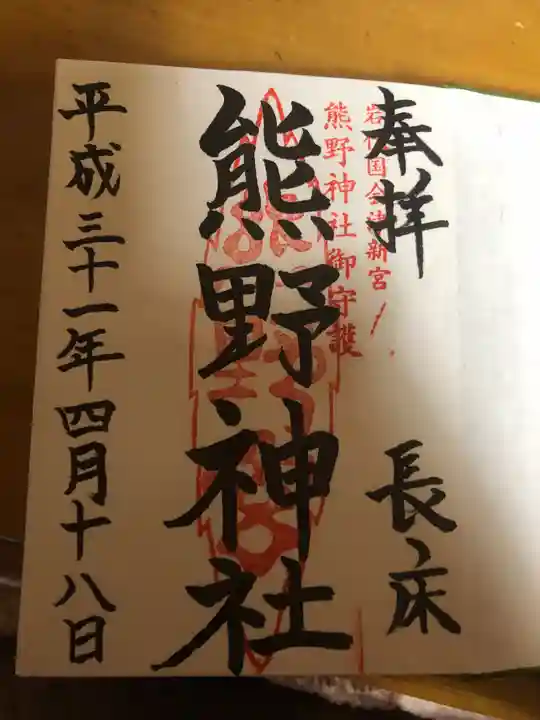 奉拝
長床
岩代国会津新宮
熊野神社御守護
熊野神社
平成三十一年四月十八日